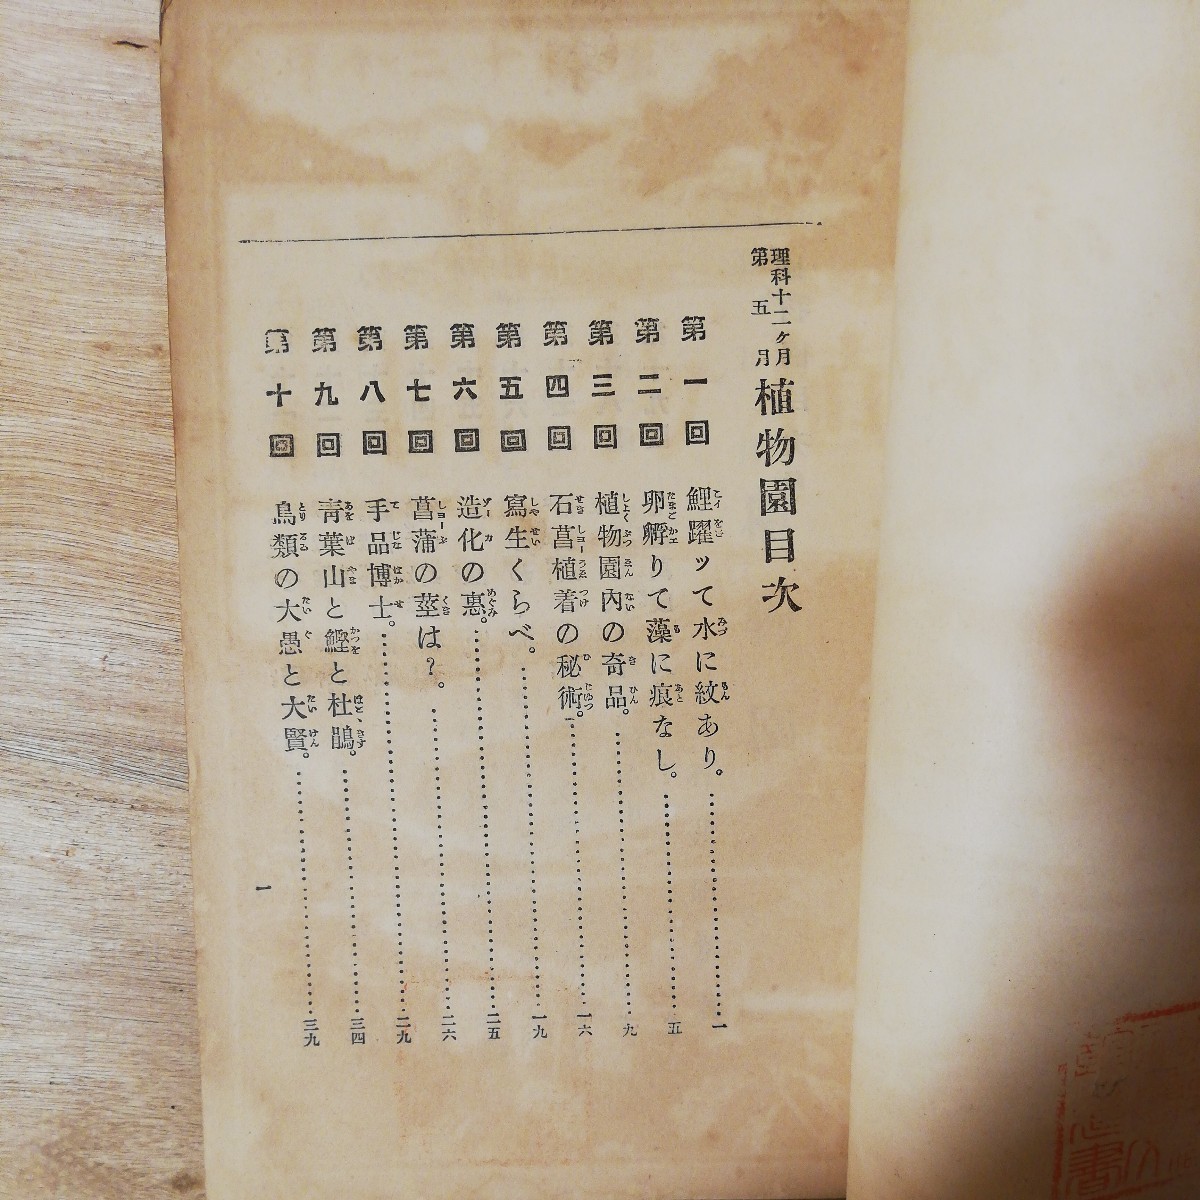 理科十二ヶ月
第五月
植物園目次
第一回 鯉躍ッて水に紋あり。……一
第二回 卵孵りて藻に痕なし。……五
第三回 植物園內の奇品。……九
第四回 石菖植着の秘術。……一六
第五回 寫生くらべ。……一九
第六回 造化の惠。……二五
第七回 菖蒲の莖は?。……二六
第八回 手品博士。……二九
第九回 靑葉山と鰹と杜鵑。……三四
第十回 鳥類の大愚と大賢。……三九
一